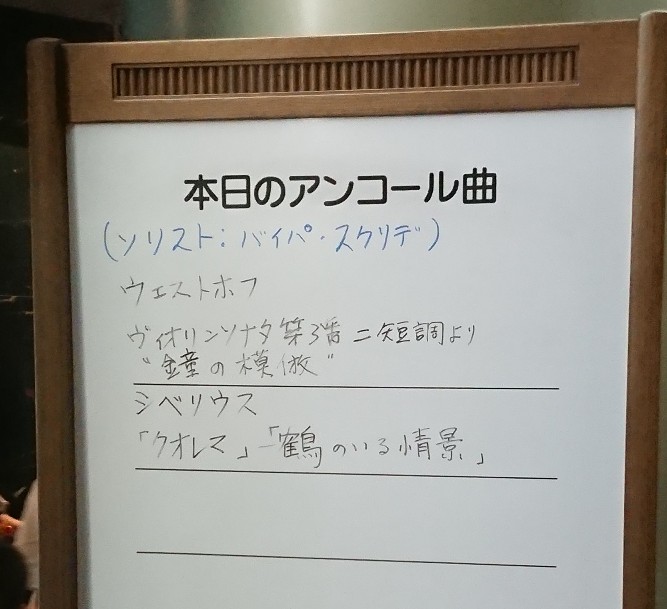 本日のアンコール曲
(ソリスト:バイバ・スクリデ)
ウェストホフ
ヴィオリンソナタ 第3番 ニ短調より
"鐘の模倣"
シベリウス
「クオレマ」-「鶴のいる情景」